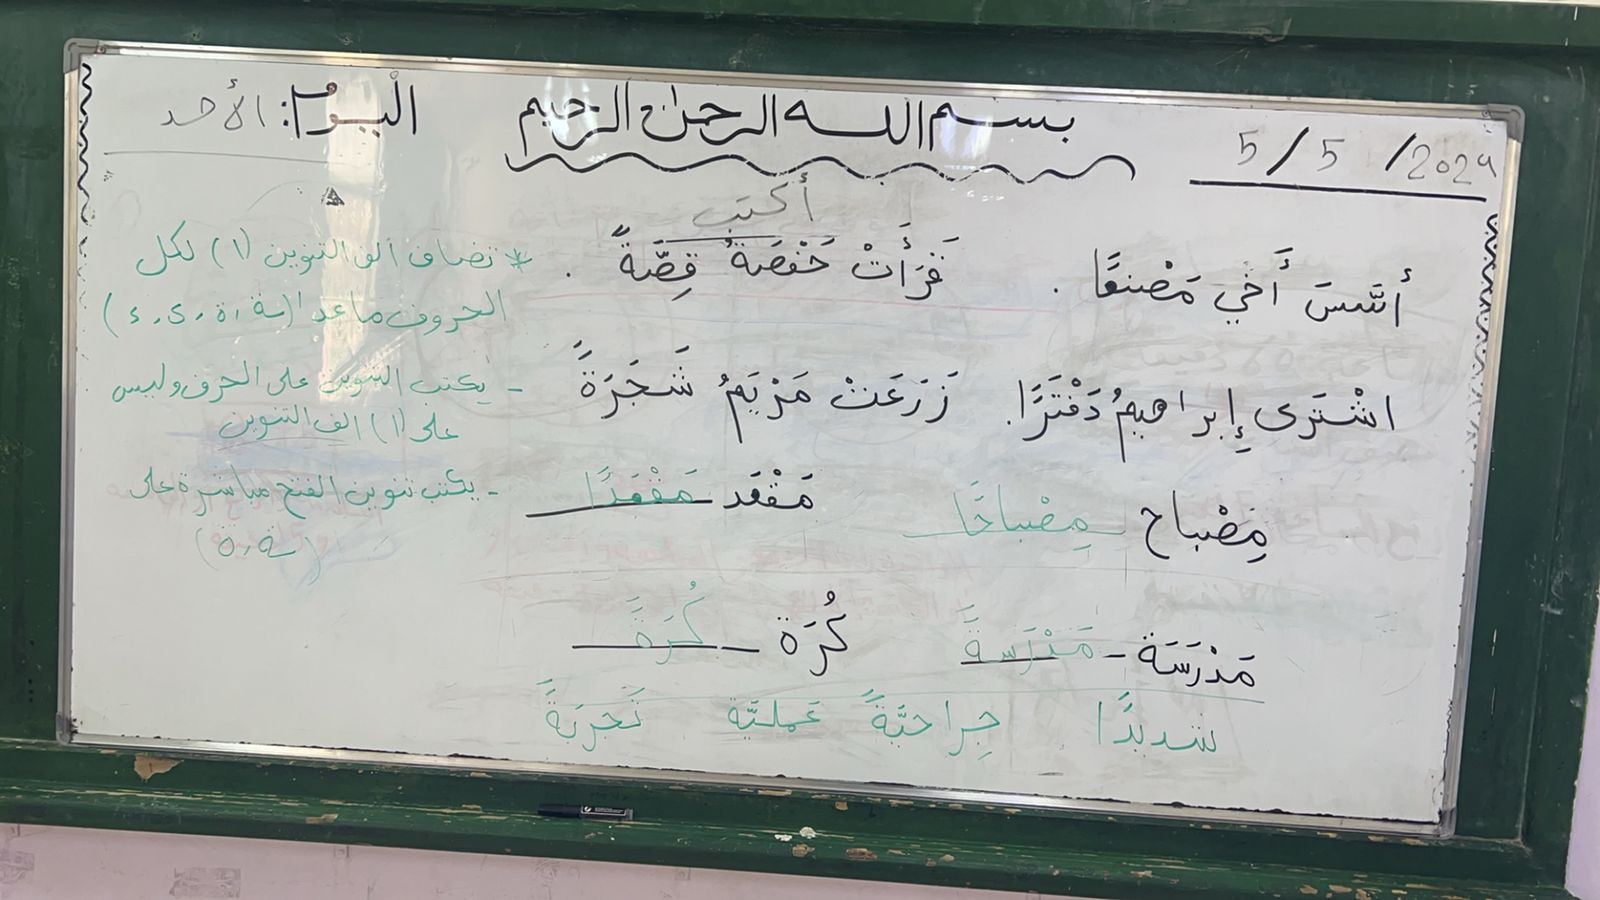 5 / 5 / 2024
بسم الله الرحمن الرحيم
اليوم: الأحد
أكتب
أَسَّسَ أَخي مَصْنعًا .
قَرَأَتْ حَفْصَةُ قِصّةً .
اشْتَرى إِبراهيمُ دَفْتَرًا.
زَرَعَتْ مَرْيَمُ شَجَرَةً
مِصْباح مِصْباحًا
مَقْعَد مَقْعَدًا
مَدْرَسَة - مَدْرَسةً
كُرَة - كُرَةً
شديدًا جِراحيَّةً عَمليَّة تَجربَةً
* تضاف ألف التنوين (ا) لكل
الحروف ماعدا (ـة ، ة ، ى ، ء)
- يكتب التنوين على الحرف وليس
على (ا) الف التنوين
- يكتب تنوين الفتح مباشرة على
(ـة ، ة)